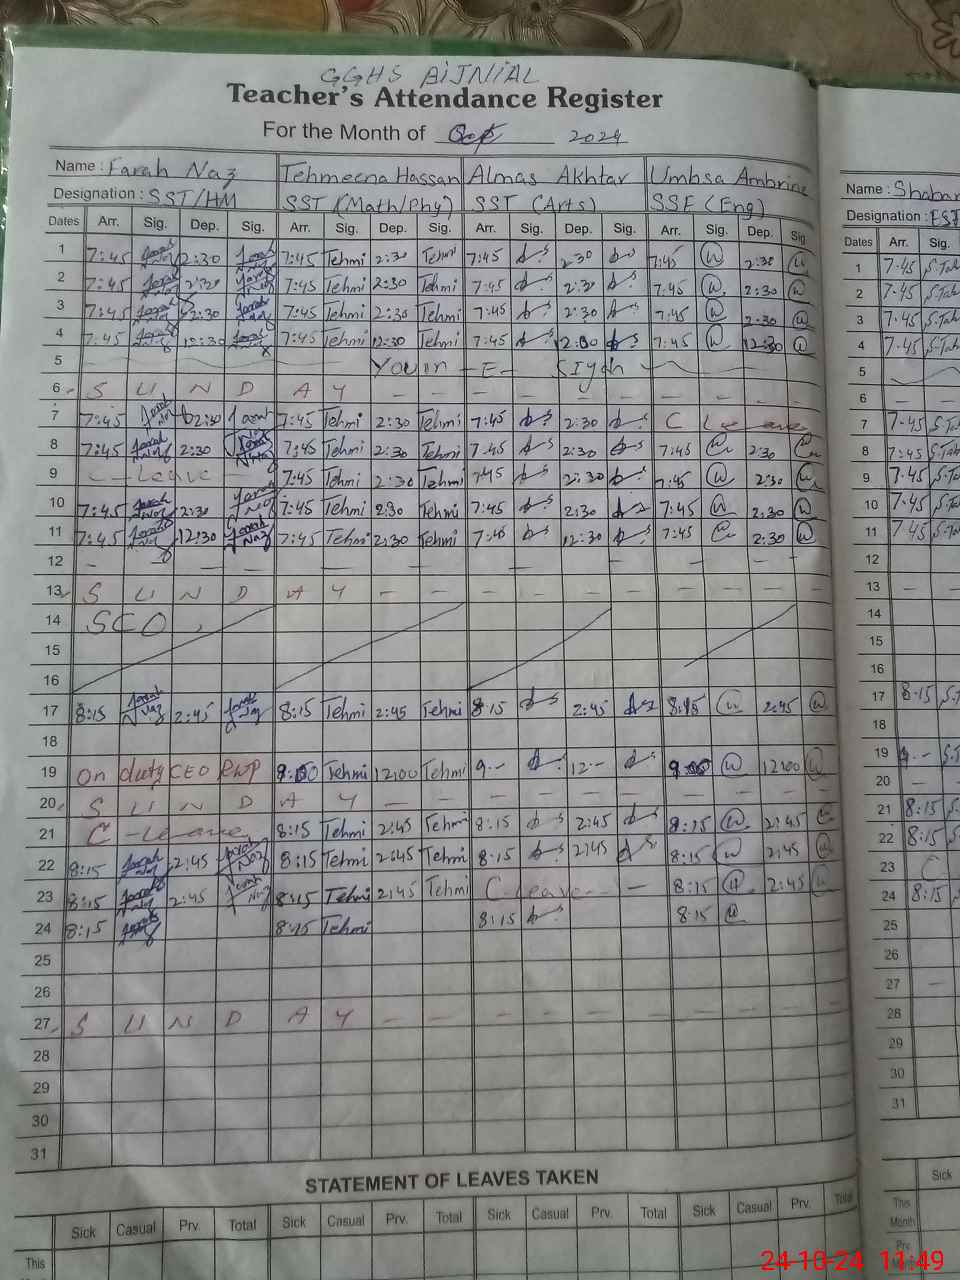 GGHS BIJNIAL
Teacher's Attendance Register
For the Month of Oct 2024
Name : Farah Naz Tehmeena Hassan Almas Akhtar Umbsa Ambrine
Designation : SST/HM SST (Math/Phy) SST (Arts) SSE (Eng)
Name : Shaban
Designation : EST
Dates Arr. Sig. Dep. Sig. Arr. Sig. Dep. Sig. Arr. Sig. Dep. Sig. Arr. Sig. Dep. Sig. Dates Arr. Sig.
1 7:45 Farah Naz 2:30 Farah Naz 7:45 Tehmi 2:30 Tehmi 7:45 2:30 7:45 2:30 1 7:45
2 7:45 Farah Naz 2:30 Farah Naz 7:45 Tehmi 2:30 Tehmi 7:45 2:30 7:45 2:30 2 7:45
3 7:45 Farah Naz 2:30 Farah Naz 7:45 Tehmi 2:30 Tehmi 7:45 2:30 7:45 2:30 3 7:45
4 7:45 Farah 12:30 Farah 7:45 Tehmi 12:30 Tehmi 7:45 12:30 7:45 12:30 4 7:45
5 Youm - E - Siyah 5
6 S U N D A Y - - - - - - - - - - 6 - -
7 7:45 Farah Naz 2:30 Farah Naz 7:45 Tehmi 2:30 Tehmi 7:45 2:30 C Leave 7 7:45
8 7:45 Farah Naz 2:30 Farah Naz 7:45 Tehmi 2:30 Tehmi 7:45 2:30 7:45 2:30 8 7:45
9 C - Leave 7:45 Tehmi 2:30 Tehmi 7:45 2:30 7:45 2:30 9 7:45
10 7:45 Farah Naz 2:30 Farah Naz 7:45 Tehmi 2:30 Tehmi 7:45 2:30 7:45 2:30 10 7:45
11 7:45 Farah Naz 12:30 Farah Naz 7:45 Tehmi 2:30 Tehmi 7:45 12:30 7:45 2:30 11 7:45
12 - - - - - - - - - 12
13 S U N D A Y - - - - - - - - - - 13 - -
14 SCO 14
15 15
16 16
17 8:15 Farah Naz 2:45 Farah Naz 8:15 Tehmi 2:45 Tehmi 8:15 2:45 8:15 2:45 17 8:15
18 18
19 On duty CEO RWP 9:00 Tehmi 12:00 Tehmi 9-- 12-- 9:00 12:00 19 9--
20 S U N D A Y - - - - - - - - - - 20 - -
21 C - Leave 8:15 Tehmi 2:45 Tehmi 8:15 2:45 8:15 2:45 21 8:15
22 8:15 Farah Naz 2:45 Farah Naz 8:15 Tehmi 2:45 Tehmi 8:15 2:45 8:15 2:45 22 8:15
23 8:15 Farah Naz 2:45 Farah Naz 8:15 Tehmi 2:45 Tehmi C - Leave - - 8:15 2:45 23 C
24 8:15 Farah 8:15 Tehmi 8:15 8:15 24 8:15
25 25
26 26
27 S U N D A Y - - - - - - - - - - 27 -
28 28
29 29
30 30
31 31
STATEMENT OF LEAVES TAKEN
Sick Casual Prv. Total Sick Casual Prv. Total Sick Casual Prv. Total Sick Casual Prv. Total Sick
This This Month
Prv
24-10-24 11:49